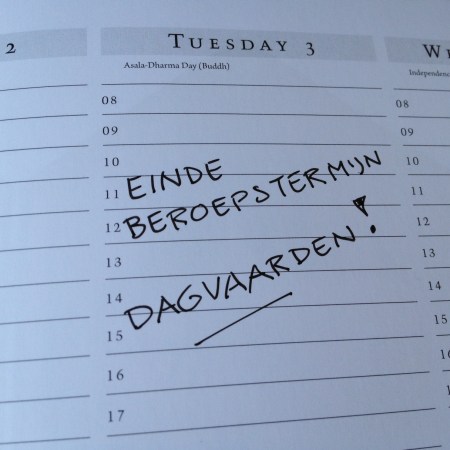 2
TUESDAY 3
Asala-Dharma Day (Buddh)
08
09
10
11 EINDE
12 BEROEPSTERMIJN
13
14 DAGVAARDEN!
15
16
17
WE
Independence
08
09
10
11
12
13
14
15
16
1